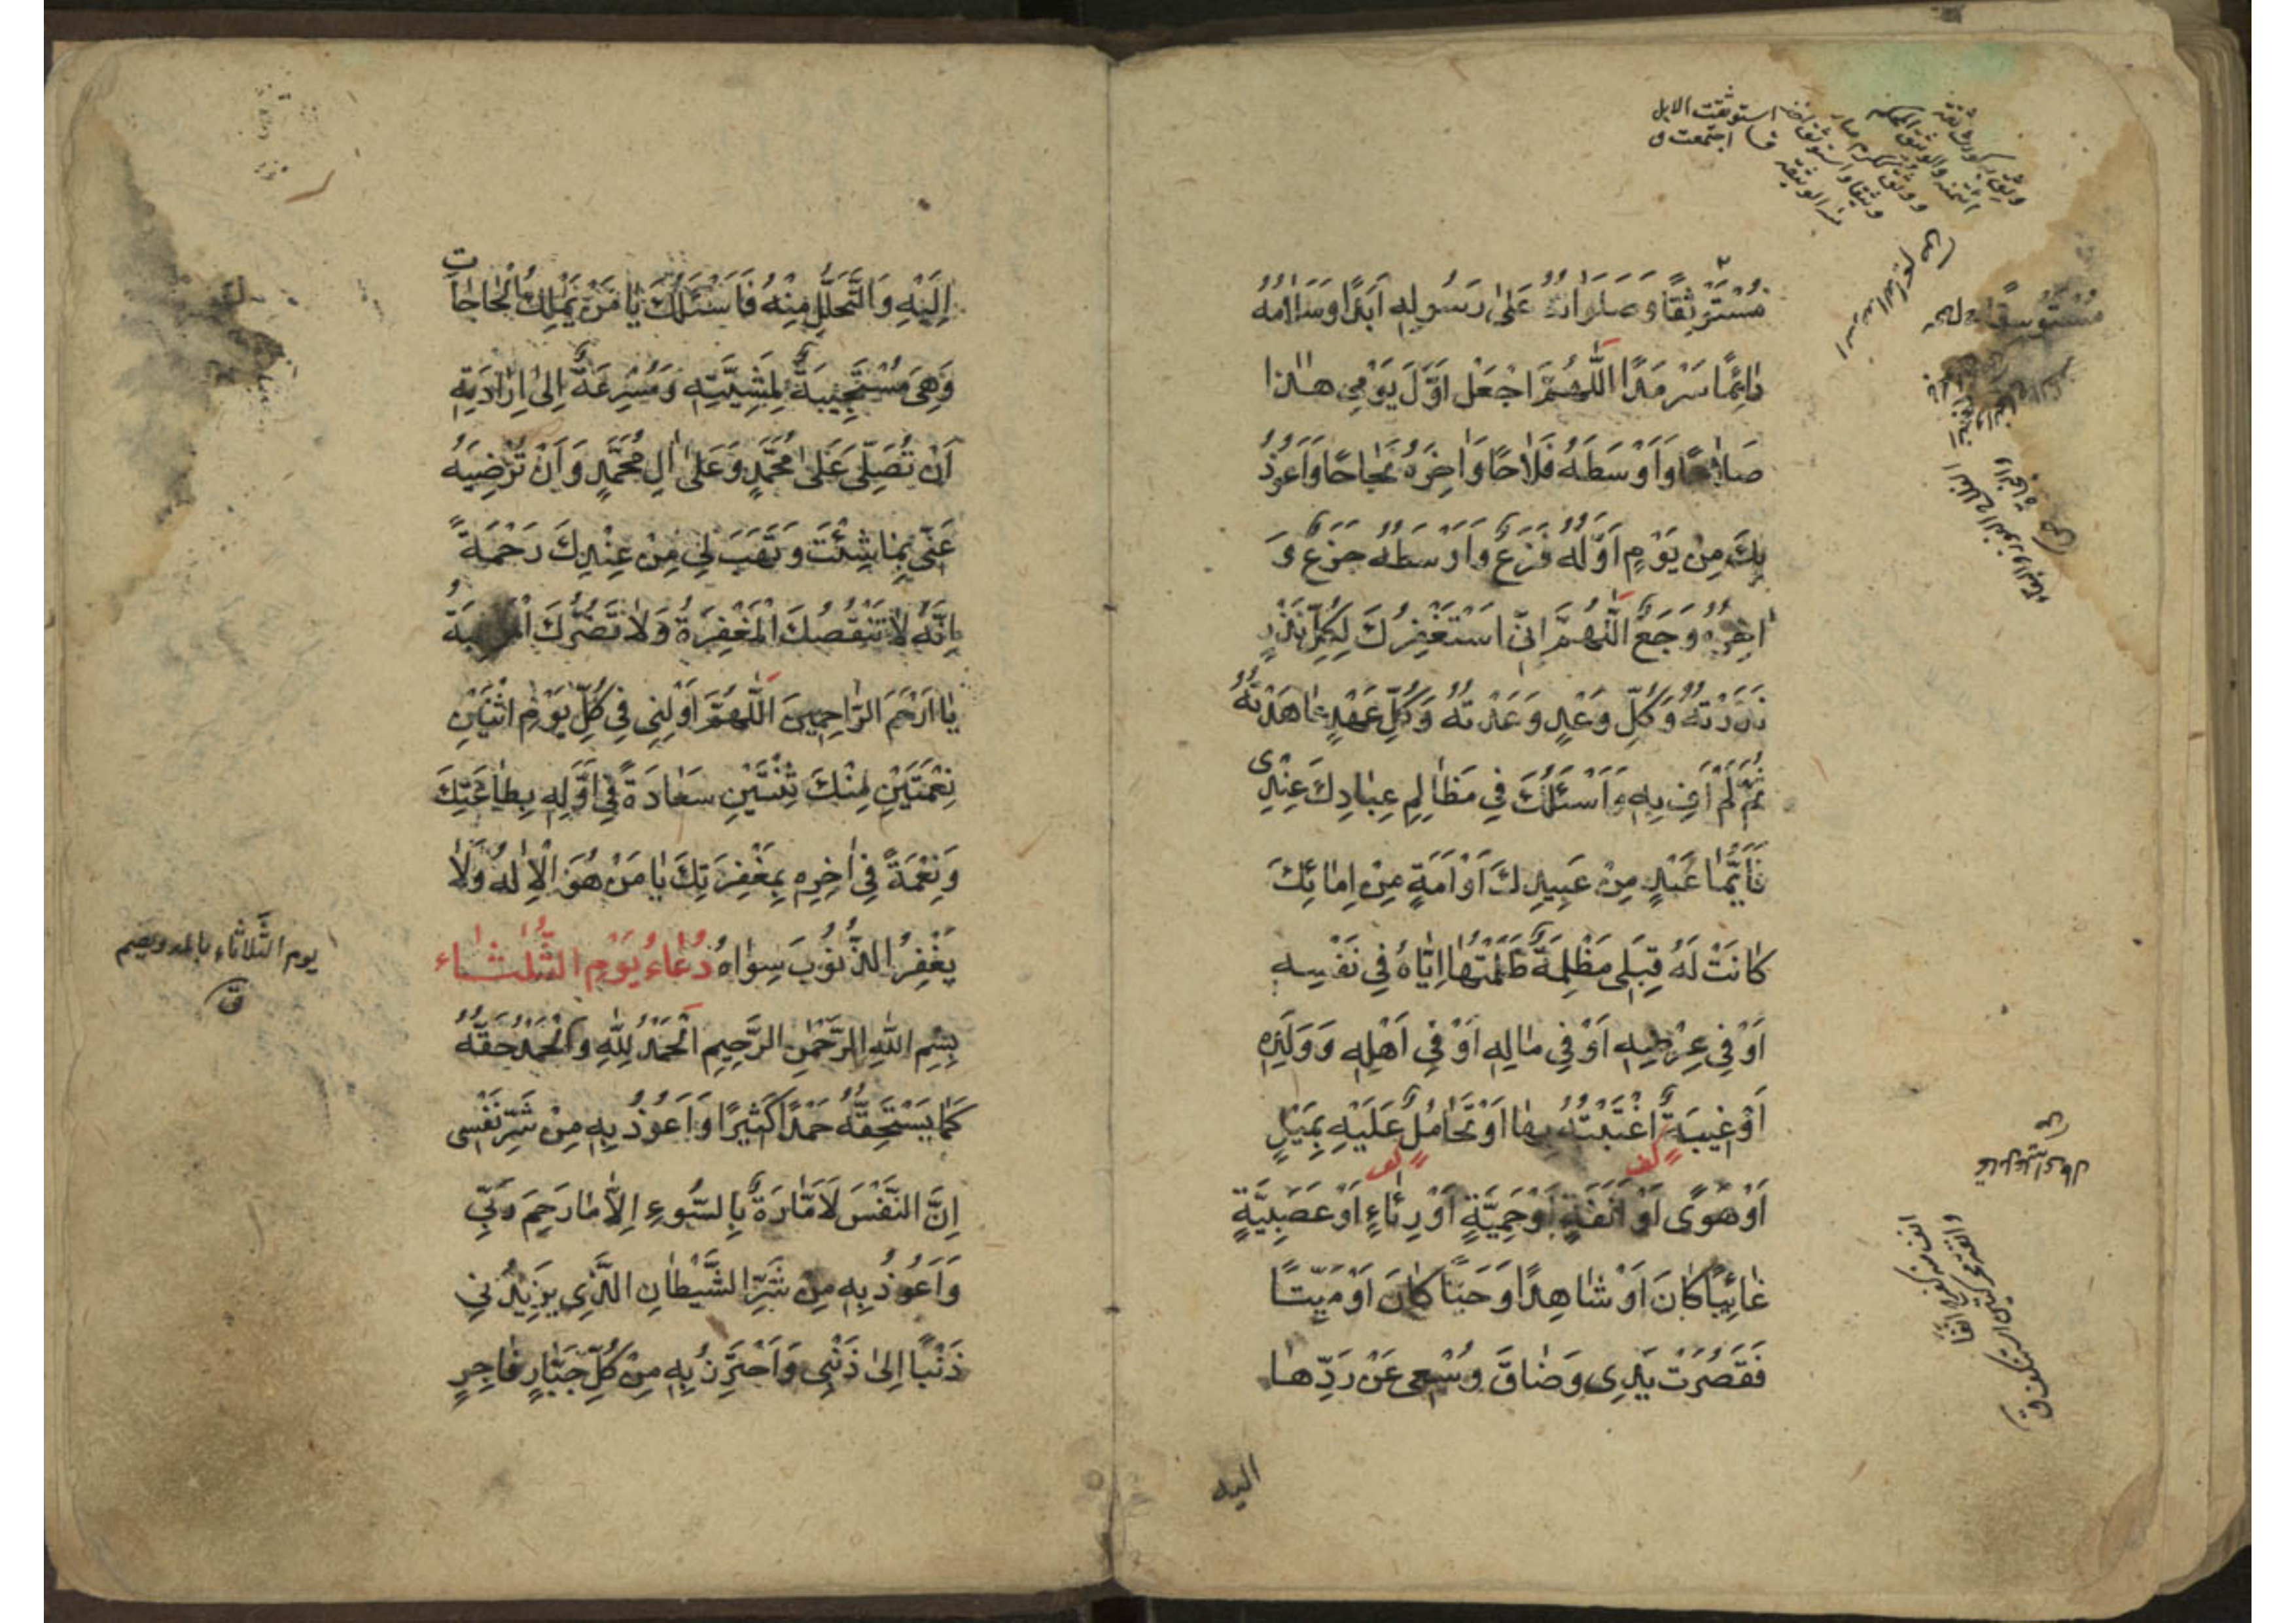 مُسْتَوْثِقًا وَصَلَوَاتُهُ عَلٰى رَسُولِهِ اَبَدًا وَسَلَامُهُ
دٰائِمًا سَرْمَدًا اَللّٰهُمَّ اجْعَلْ اَوَّلَ يَوْمِي هٰذا
صَلاٰحًا وَاَوْسَطَهُ فَلاٰحًا وَاٰخِرَهُ نَجٰاحًا وَاَعُوذُ
بِكَ مِنْ يَوْمٍ اَوَّلُهُ فَزَعٌ وَاَوْسَطُهُ جَزَعٌ وَ
اٰخِرُهُ وَجَعٌ اَللّٰهُمَّ اِنّي اَسْتَغْفِرُكَ لِكُلِّ نَذْرٍ
نَذَرْتُهُ وَكُلِّ وَعْدٍ وَعَدْتُهُ وَكُلِّ عَهْدٍ عٰاهَدْتُهُ
ثُمَّ لَمْ اَفِ بِهِ وَاَسْئَلُكَ فِي مَظٰالِمِ عِبٰادِكَ عِنْدِى
فَاَيُّمٰا عَبْدٍ مِنْ عَبِيدِكَ اَوْ اَمَةٍ مِنْ اِمٰائِكَ
كٰانَتْ لَهُ قِبَلِى مَظْلِمَةٌ ظَلَمْتُهٰا اِيّٰاهُ فِي نَفْسِهِ
اَوْ فِي عِرْضِهِ اَوْ فِي مٰالِهِ اَوْ فِي اَهْلِهِ وَوَلَدِهِ
اَوْ غِيبَةٌ اغْتَبْتُهُ بِهٰا اَوْ تَحٰامُلٌ عَلَيْهِ بِمَيْلٍ
اَوْ هَوًى اَوْ اَنَفَةٍ اَوْ حَمِيَّةٍ اَوْ رِئٰاءٍ اَوْ عَصَبِيَّةٍ
غٰائِبًا كٰانَ اَوْ شٰاهِدًا وَحَيًّا كٰانَ اَوْ مَيِّتًا
فَقَصُرَتْ يَدِى وَضٰاقَ وُسْعِى عَنْ رَدِّهٰا
اليه
استوثقت الابل
اجتمعت
اِلَيْهِ وَالتَّحَلُّلِ مِنْهُ فَاَسْئَلُكَ يٰا مَنْ يَمْلِكُ الْحٰاجٰاتِ
وَهِىَ مُسْتَجِيبَةٌ لِمَشِيَّتِهِ وَمُسْرِعَةٌ اِلىٰ اِرٰادَتِهِ
اَنْ تُصَلِّىَ عَلىٰ مُحَمَّدٍ وَعَلىٰ اٰلِ مُحَمَّدٍ وَاَنْ تُرْضِيَهُ
عَنّي بِمٰا شِئْتَ وَتَهَبَ لِي مِنْ عِنْدِكَ رَحْمَةً
اِنَّهُ لاٰ تَنْقُصُكَ الْمَغْفِرَةُ وَلاٰ تَضُرُّكَ الْمَوْهِبَةُ
يٰا اَرْحَمَ الرّٰاحِمِينَ اَللّٰهُمَّ اَوْلِنِي فِي كُلِّ يَوْمِ اثْنَيْنِ
نِعْمَتَيْنِ مِنْكَ ثِنْتَيْنِ سَعٰادَةً فِي اَوَّلِهِ بِطٰاعَتِكَ
وَنِعْمَةً فِي اٰخِرِهِ بِمَغْفِرَتِكَ يٰا مَنْ هُوَ الْاِلٰهُ وَلاٰ
يَغْفِرُ الذُّنُوبَ سِوٰاهُ دُعٰاءُ يَوْمِ الثُّلٰثٰاء
بِسْمِ اللّٰهِ الرَّحْمٰنِ الرَّحِيمِ اَلْحَمْدُ لِلّٰهِ وَالْحَمْدُ حَقُّهُ
كَمٰا يَسْتَحِقُّهُ حَمْدًا كَثِيرًا وَاَعُوذُ بِهِ مِنْ شَرِّ نَفْسِى
اِنَّ النَّفْسَ لَاَمّٰارَةٌ بِالسُّوءِ اِلاّٰ مٰا رَحِمَ رَبِّي
وَاَعُوذُ بِهِ مِنْ شَرِّ الشَّيْطٰانِ الَّذِي يَزِيدُنِي
ذَنْبًا اِلىٰ ذَنْبِى وَاَحْتَرِزُ بِهِ مِنْ كُلِّ جَبّٰارٍ فٰاجِرٍ
يوم الثَّلاثاء بالمد ويضم
ق